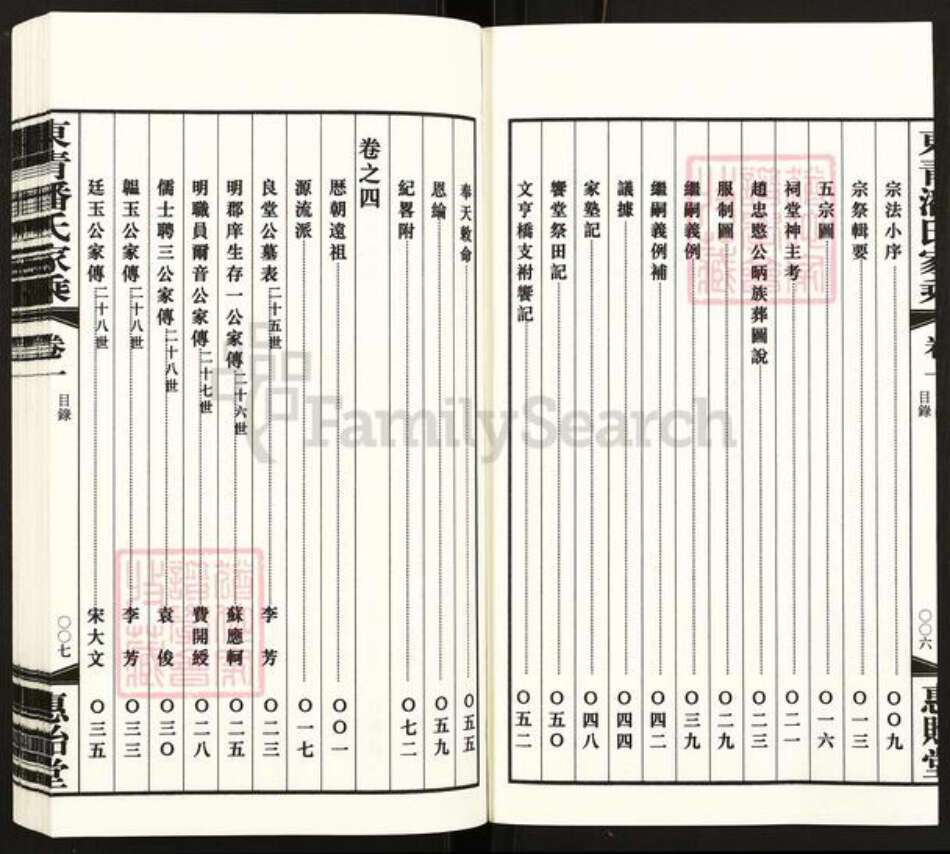 宗法小序 〇〇九
宗祭輯要 〇一三
五宗圖 〇一六
祠堂神主考 〇二一
趙忠愍公昞族葬圖說 〇二三
服制圖 〇二九
繼嗣義例 〇三九
繼嗣義例補 〇四二
議據 〇四四
家塾記 〇四八
饗堂祭田記 〇五〇
文亨橋支祔饗記 〇五二
目錄
〇〇六
奉天敕命 〇五五
恩綸 〇五九
紀畧附 〇七二
卷之四
歷朝遠祖 〇〇一
源流派 〇一七
良堂公墓表 二十五世 李芳 〇二三
明郡庠生存一公家傳 二十六世 蘇應軻 〇二五
明職員爾音公家傳 二十七世 費開綬 〇二八
儒士聘三公家傳 二十八世 袁俊 〇三〇
韞玉公家傳 二十八世 李芳 〇三三
廷玉公家傳 二十八世 宋大文 〇三五
東青潘氏家乘 卷一
目錄
〇〇七
惠貽堂
FamilySearch